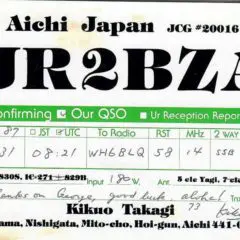 Aichi Japan JCG #20016
JR2BZA
Confirming Our QSO Ur Reception Repor
87 JST UTC To Radio RST MHz 2 WAY
31 08:21 WH6BLQ 58 14 SSB
830S. IC-271+829B Input 180 W. Ant. 5 ele Yagi, 7-el
Thanks on George, good luck, aloha!
73
Kikuo Takagi
ama, Nishigata, Mito-cho, Hoi-gun, Aichi 441-0